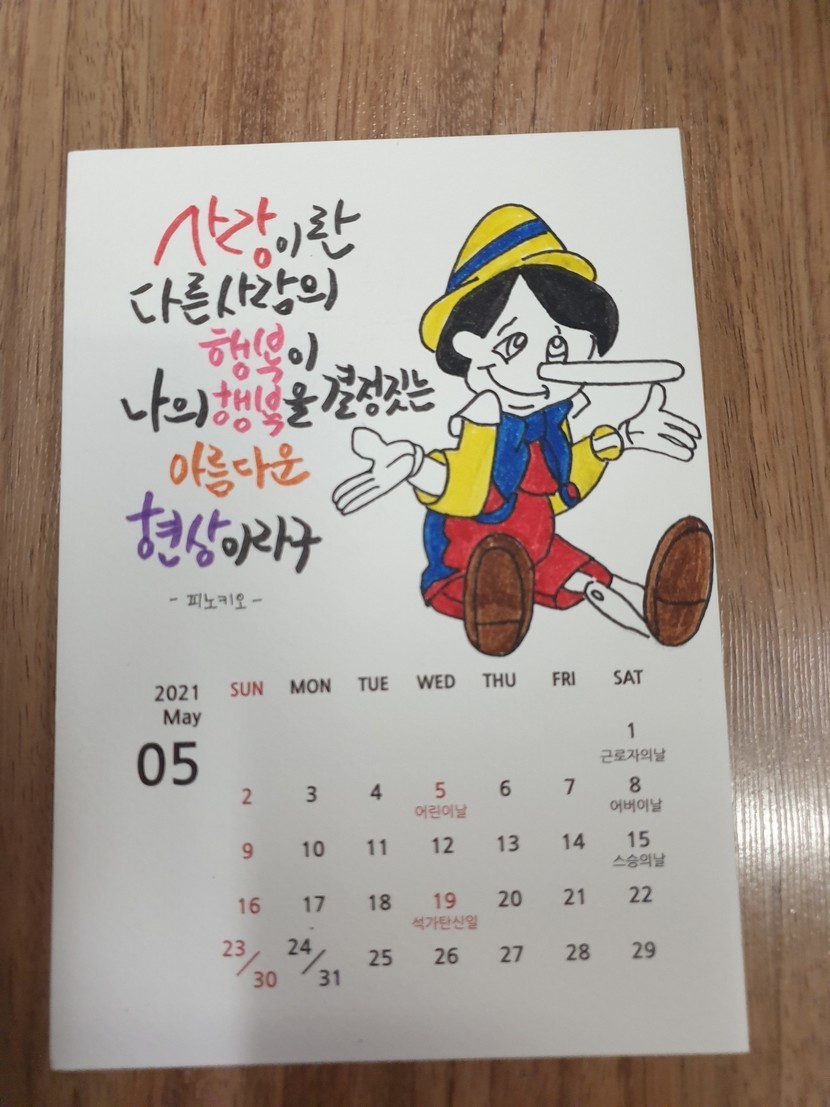 사랑이란
다른사람의
행복이
나의행복을 결정짓는
아름다운
현상이라구
- 피노키오 -
2021 SUN MON TUE WED THU FRI SAT
May
05
1
근로자의날
2 3 4 5 6 7 8
어린이날 어버이날
9 10 11 12 13 14 15
스승의날
16 17 18 19 20 21 22
석가탄신일
23/30 24/31 25 26 27 28 29